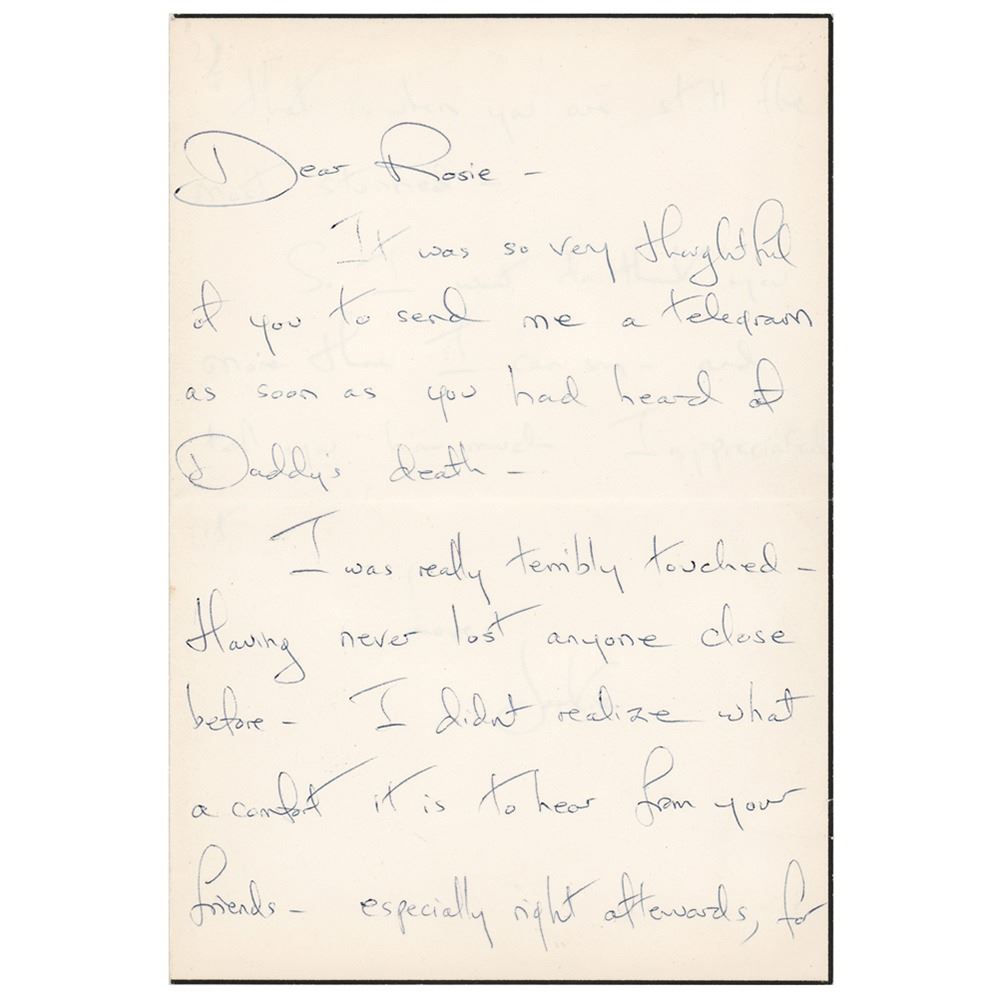 Dear Rosie -
It was so very thoughtful
of you to send me a telegram
as soon as you had heard of
Daddy's death -
I was really terribly touched -
Having never lost anyone close
before - I didn't realize what
a comfort it is to hear from your
friends - especially right afterwards, for